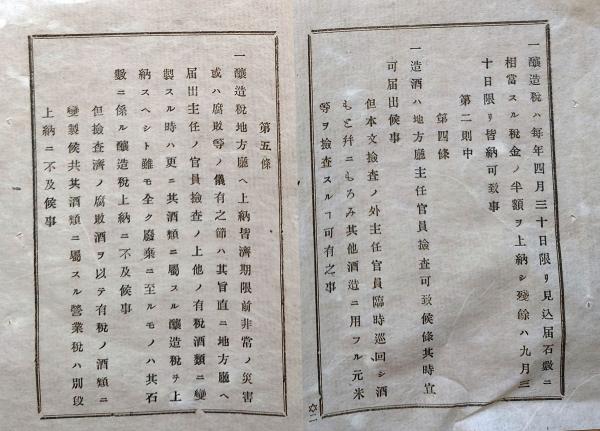 一釀造稅ハ毎年四月三十日限リ見込届石數ニ
相當スル稅金ノ半額ヲ上納シ殘餘ハ九月三
十日限リ皆納可致事
第二則中
第四條
一造酒ハ地方廳主任官員撿査可致候條其時宜
可届出候事
但本文撿査ノ外主任官員臨時巡回シ酒
もと幷ニもろみ其他酒造ニ用フル元米
等ヲ撿査スルヿ可有之事
二
第五條
一釀造稅地方廳ヘ上納皆濟期限前非常ノ災害
或ハ腐敗等ノ儀有之節ハ其旨直ニ地方廳ヘ
届出主任ノ官員撿査ノ上他ノ有稅酒類ニ變
製スル時ハ更ニ其酒類ニ屬スル釀造稅チ上
納スヘシト雖モ全ク廢棄ニ至ルモノハ其石
數ニ係ル釀造稅上納ニ不及候事
但撿査濟ノ腐敗酒ヲ以テ有稅ノ酒類ニ
變製候共其酒類ニ屬スル營業稅ハ別段
上納ニ不及候事